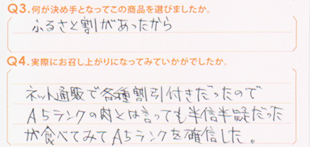 Q3.何が決め手となってこの商品を選びましたか。
ふるさと割があったから
Q4.実際にお召し上がりになってみていかがでしたか。
ネット通販で各種割引付きだったので
A5ランクの肉とは言っても半信半疑だった
が食べてみてA5ランクを確信した。